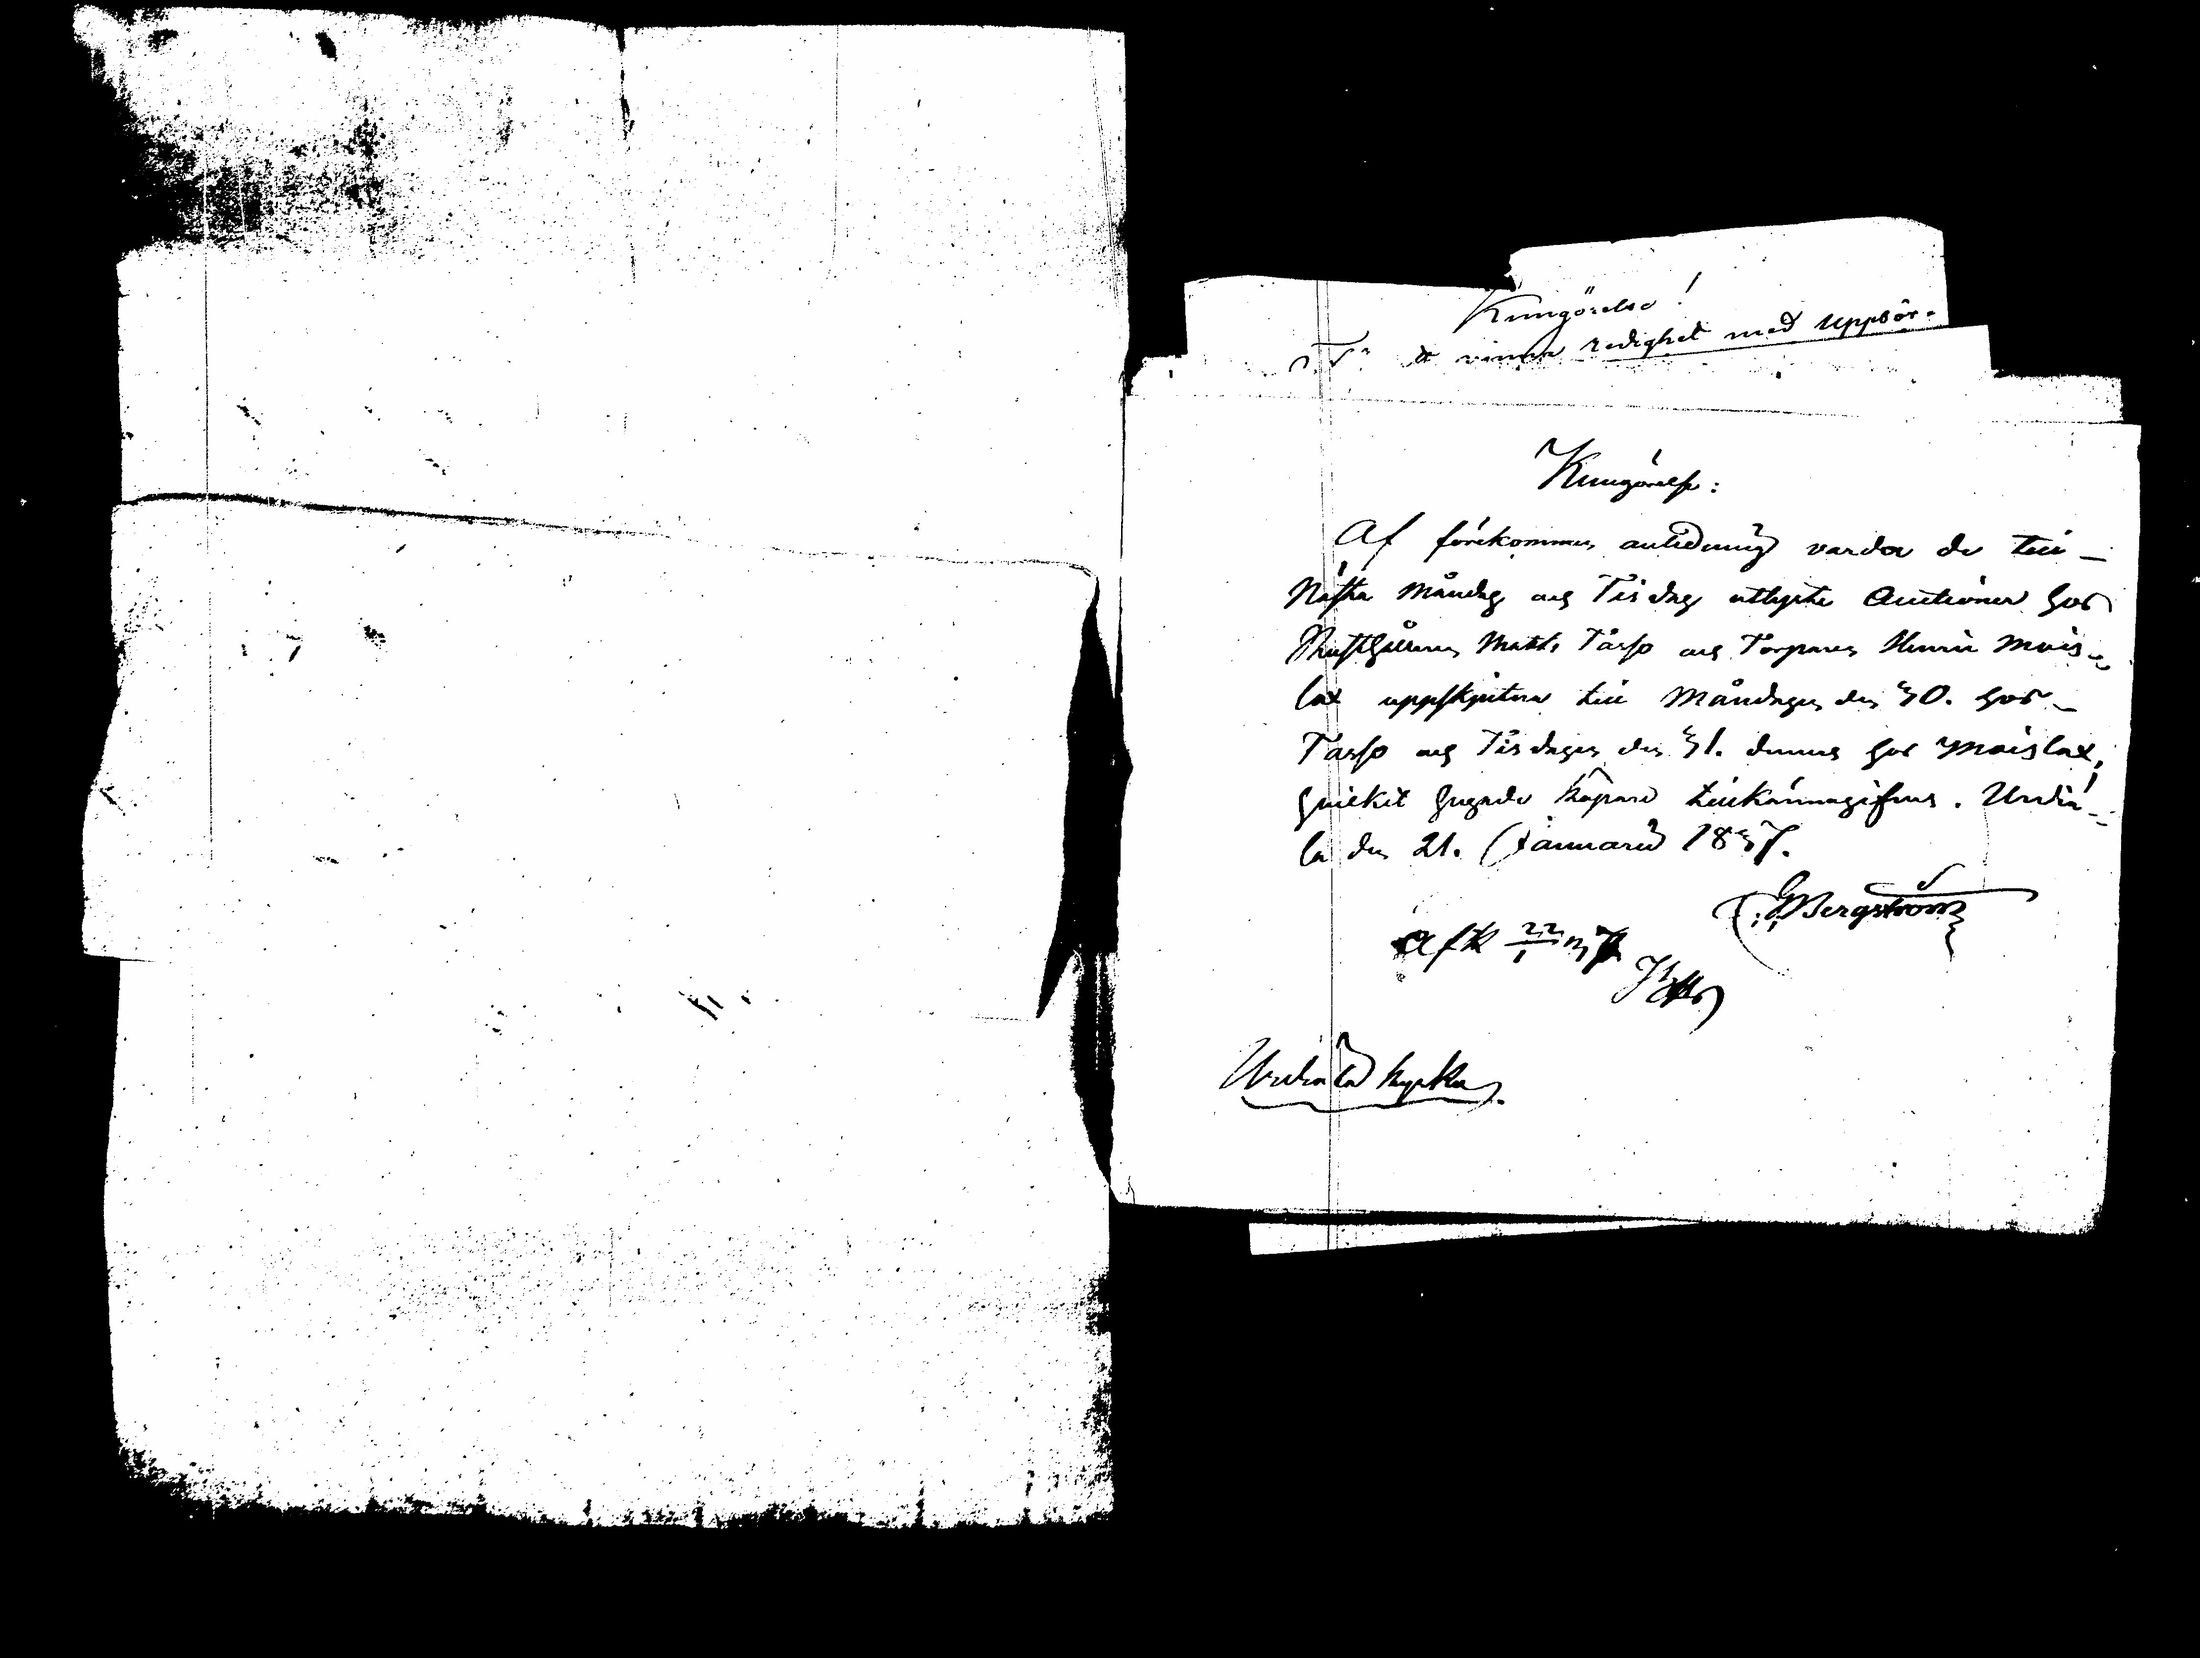 Kungörelse!
att vinna redighet med uppbör-
Kungörelse:
Af förekommen anledning varda de till
Nästa Måndag och Tisdag utlyste Auctioner hos
Rusthållaren Matts Tarso och Torparen Henric Mais-
lax uppskjutna till Måndagen den 30. hos
Tarso och Tisdagen den 31. dennes hos Maislax,
hvilket hugade köpare tillkännagifves. Urdia-
la den 21. Januarii 1837.
G Bergström
Afk 22/1 37
Urdiala kyrka.